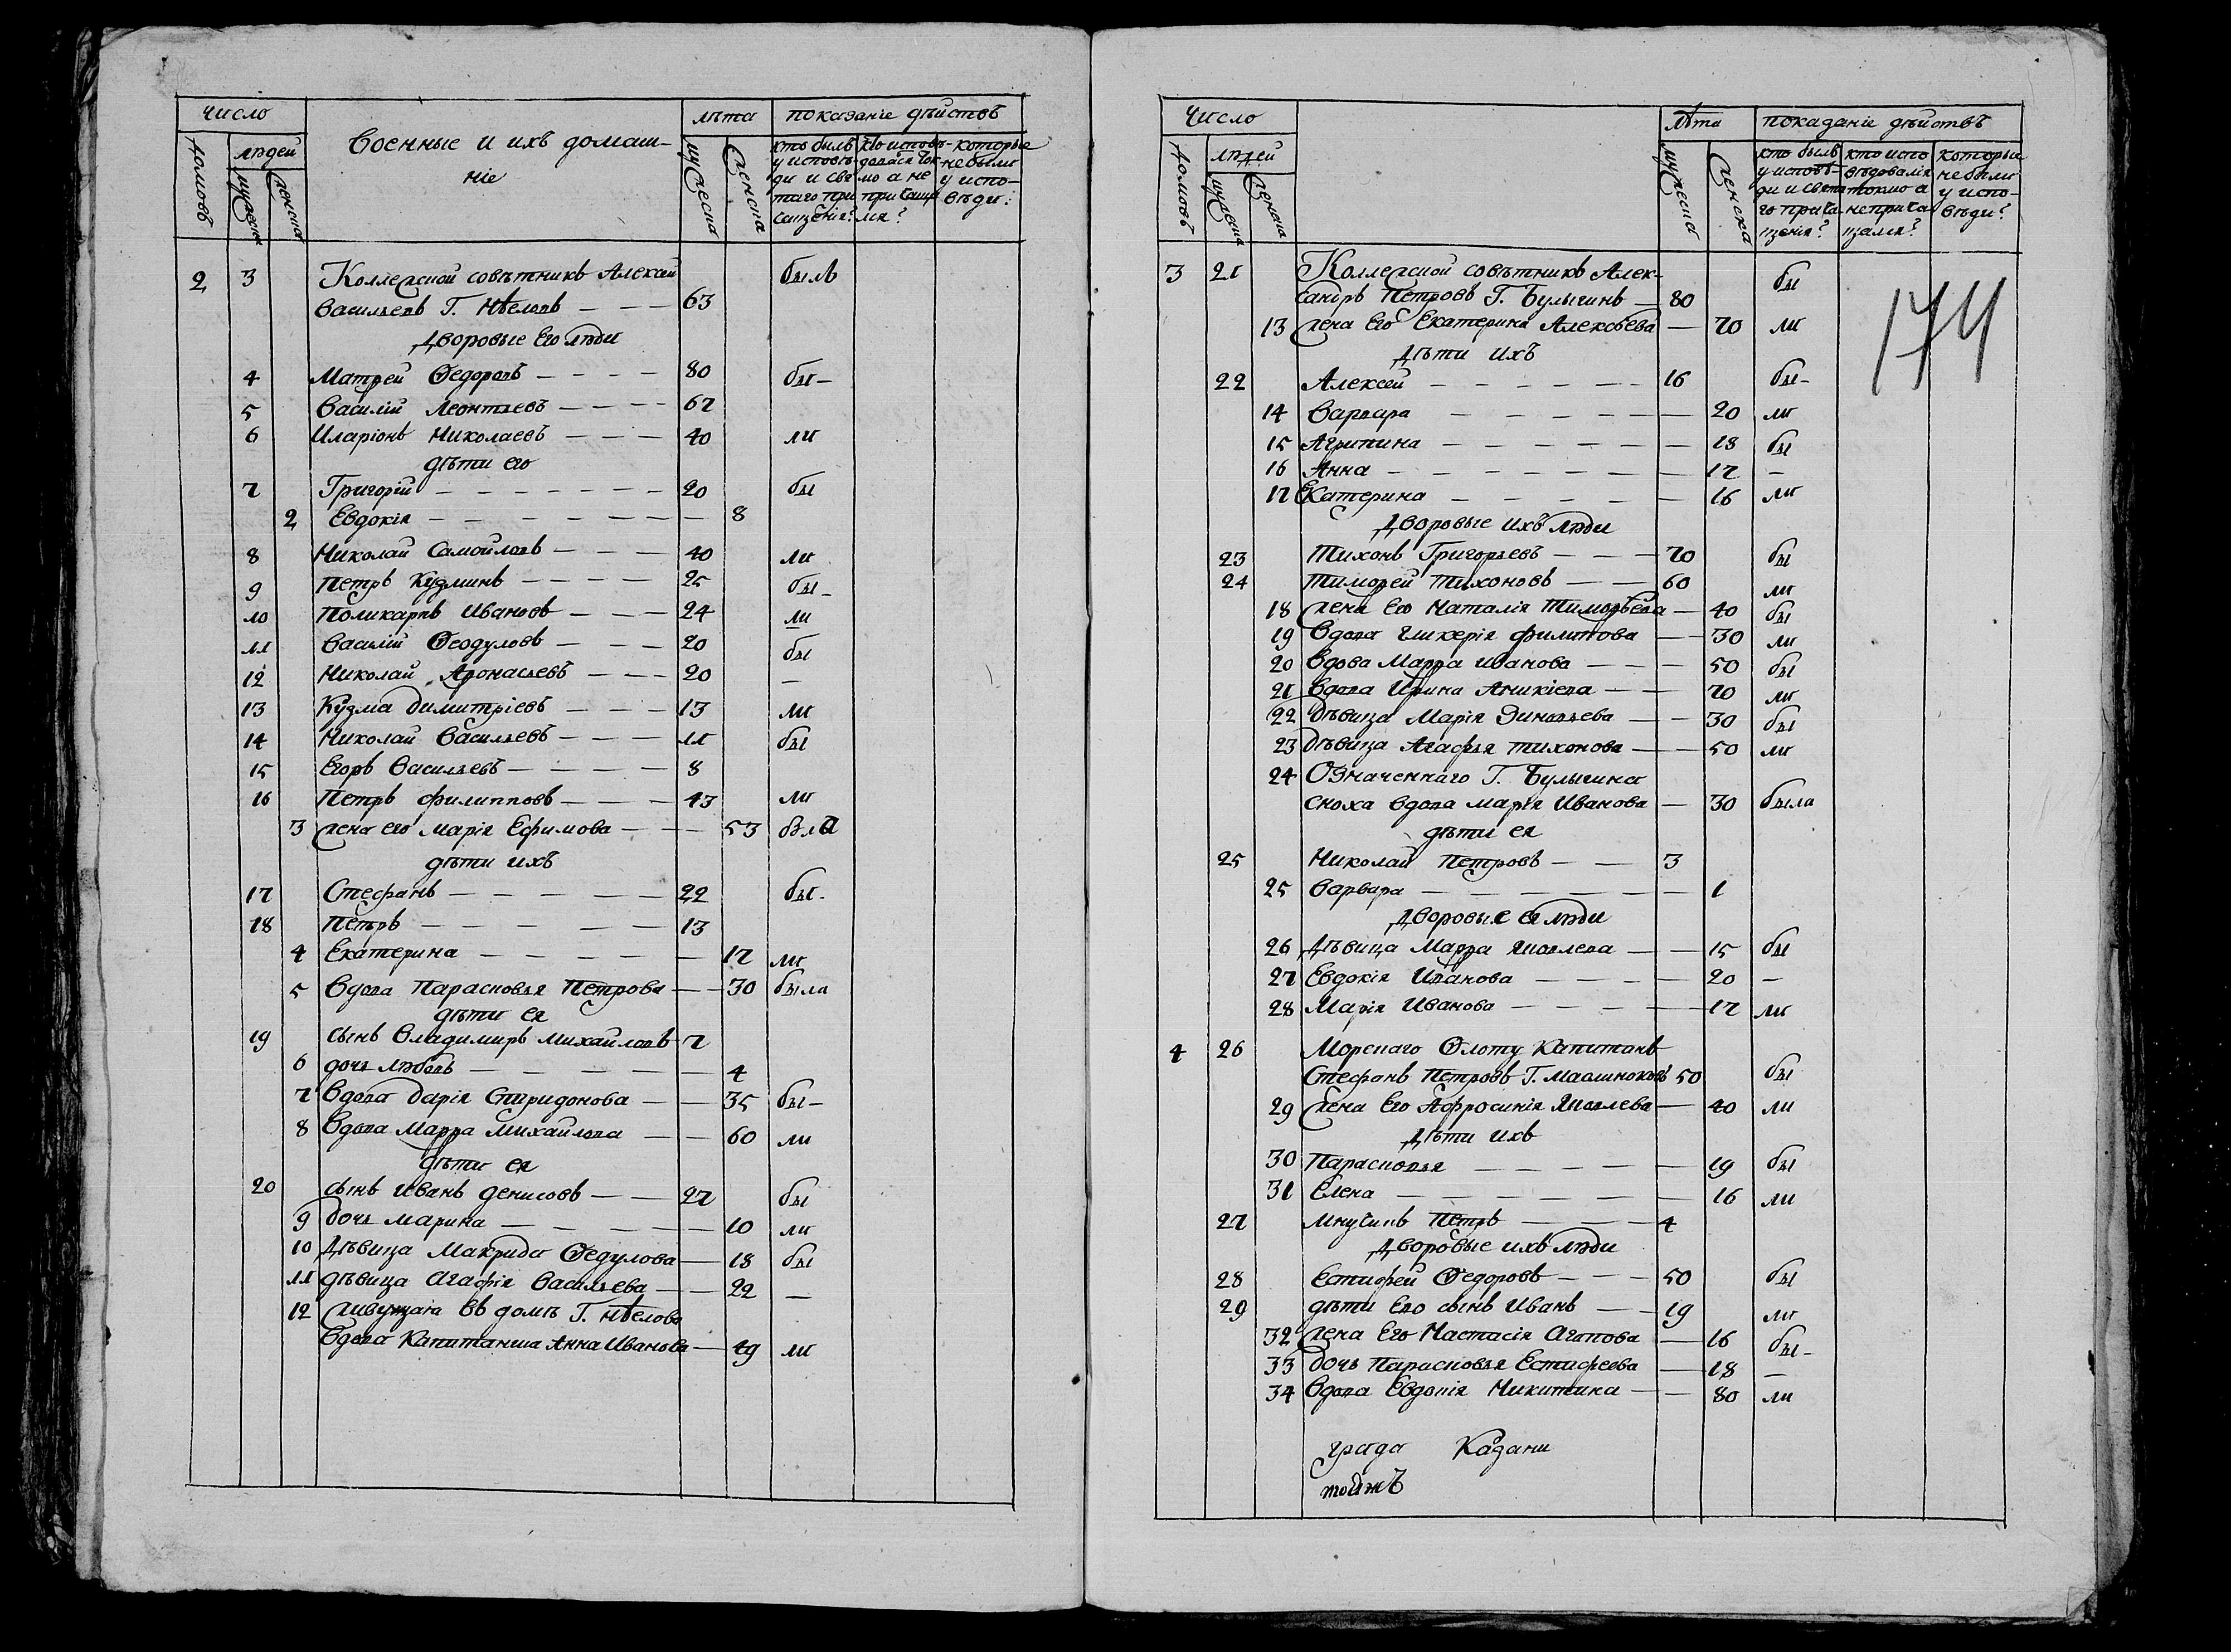 число
военные и ихъ домаш-
ніе
лѣта
показаніе дѣиствъ
домовъ
людей
мужеска
женска
мужеска
женска
кто былъ у исповѣ-ди и свя-таго при-чащенія?
кто исповѣ-довался ток-мо а не причаще-лся?
которые не были у испо-вѣди?
2 3 Коллежской совѣтникъ Алексѣй былъ
Васильевъ Г. Нѣеловъ 63
Дворовые Его люди
4 Матѳей Ѳедоровъ 80 бы-
5 Василій Леонтьевъ 67
6 Иларіонъ Николаевъ 40 ли
дѣти его
7 Григорій 20 бы
2 Евдокія 8
8 Николай Самойловъ 40 ли
9 Петръ Кузминъ 25 бы-
10 Поликарпъ Ивановъ 24 ли
11 Василій Ѳеодуловъ 20 бы
12 Николай Аѳонасьевъ 20 —
13 Кузма Димитріевъ 13 ли
14 Николай Васильевъ 11 бы
15 Егоръ Васильевъ 8
16 Петръ Филипповъ 43 ли
3 жена его Марія Ефимова 53 была
дѣти ихъ
17 Стефанъ 22 бы-
18 Петръ 13
4 Екатерина 17 ли
5 вдова Парасковья Петрова 30 была
дѣти ея
19 сынъ Владимиръ Михайловъ 7
6 дочь Любовь 4
7 вдова Дарія Спиридонова 35 бы-
8 вдова Марѳа Михайлова 60 ли
дѣти ея
20 сынъ Иванъ Денисовъ 27 бы
9 дочь Марина 10 ли
10 Дѣвица Макрида Ѳедулова 18 бы
11 дѣвица Агафія Васильева 22 —
12 живущая въ домѣ Г. Нѣелова
вдова Капитанша Анна Иванова 49 ли
Число
лѣта
показаніе дѣиствъ
домовъ
людей
мужеска
женска
мужеска
женска
кто былъ у исповѣ-ди и свята-го прича-щенія?
кто испо-вѣдовался токмо а не прича-щался?
которые не были у испо-вѣди?
174
3 21 Коллежской совѣтникъ Алек- бы
сандръ Петровъ Г. Булыгинъ 80
13 жена Его Екатерина Алексѣева 70 ли
Дѣти ихъ
22 Алексѣй 16 бы-
14 Варвара 20 ли
15 Агрипина 18 бы
16 Анна 17 —
17 Екатерина 16 ли
Дворовые ихъ люди
23 Тихонъ Григорьевъ 70 бы
24 Тимоѳей Тихоновъ 60 ли
18 жена его Наталія Тимоѳѣева 40 бы
19 вдова Гликерія Филипова 30 ли
20 вдова Марѳа Иванова 50 бы
21 вдова Ирина Аникіева 70 ли
22 дѣвица Марія Зиновьева 30 бы
23 дѣвица Агафья Тихонова 50 ли
24 Означеннаго Г. Булыгина
сноха вдова Марія Иванова 30 была
дѣти ея
25 Николай Петровъ 3
25 Варвара 1
Дворовые ея люди
26 Дѣвица Марѳа Яковлева 15 бы
27 Евдокія Иванова 20 —
28 Марія Иванова 17 ли
4 26 Морскаго Ѳлоту Капитанъ
Стефанъ Петровъ Г. 50 бы
29 жена Его Афросинія Яковлева 40 ли
Дѣти ихъ
30 Парасковья 19 бы
31 Елена 16 ли
27 Мнучикъ Петръ 4
Дворовые ихъ люди
28 Естифей Ѳедоровъ 50 бы
29 дѣти Его сынъ Иванъ 19 ли
32 жена Его Настасія Агапова 16 бы-
33 дочь Парасковья Естифеева 18 —
34 вдова Евдокія Никитина 80 ли
града Казани
тоижъ